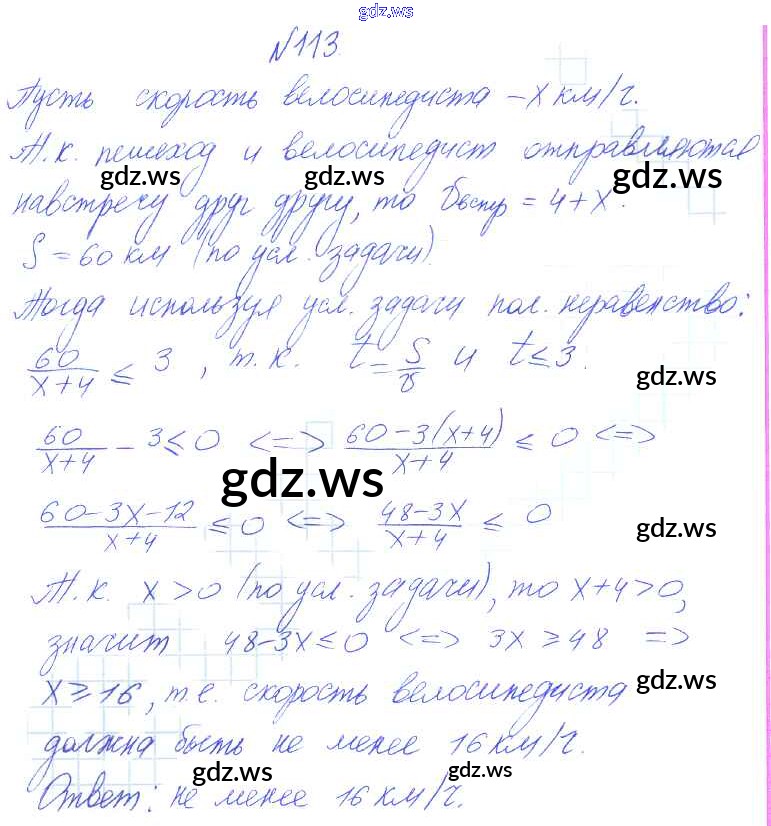 gdz.ws
N113
Пусть скорость велосипедиста – x км/ч.
Т.к. пешеход и велосипедист отправляются
gdz.ws gdz.ws gdz.ws
навстречу друг другу, то = 4 + x.
S = 60 км (по усл. задачи).
Тогда используя усл. задачи пол. неравенство:
60/(x+4) ≤ 3, т.к. t = S/v и t ≤ 3.
gdz.ws
60/(x+4) – 3 ≤ 0 <=> (60–3(x+4))/(x+4) ≤ 0 <=>
gdz.ws
(60–3x–12)/(x+4) ≤ 0 <=> (48–3x)/(x+4) ≤ 0
gdz.ws
Т.к. x > 0 (по усл. задачи), то x+4 > 0,
значит 48–3x ≤ 0 <=> 3x ≥ 48 =>
x ≥ 16, т.е. скорость велосипедиста
gdz.ws
должна быть не менее 16 км/ч.
gdz.ws gdz.ws
Ответ: не менее 16 км/ч.